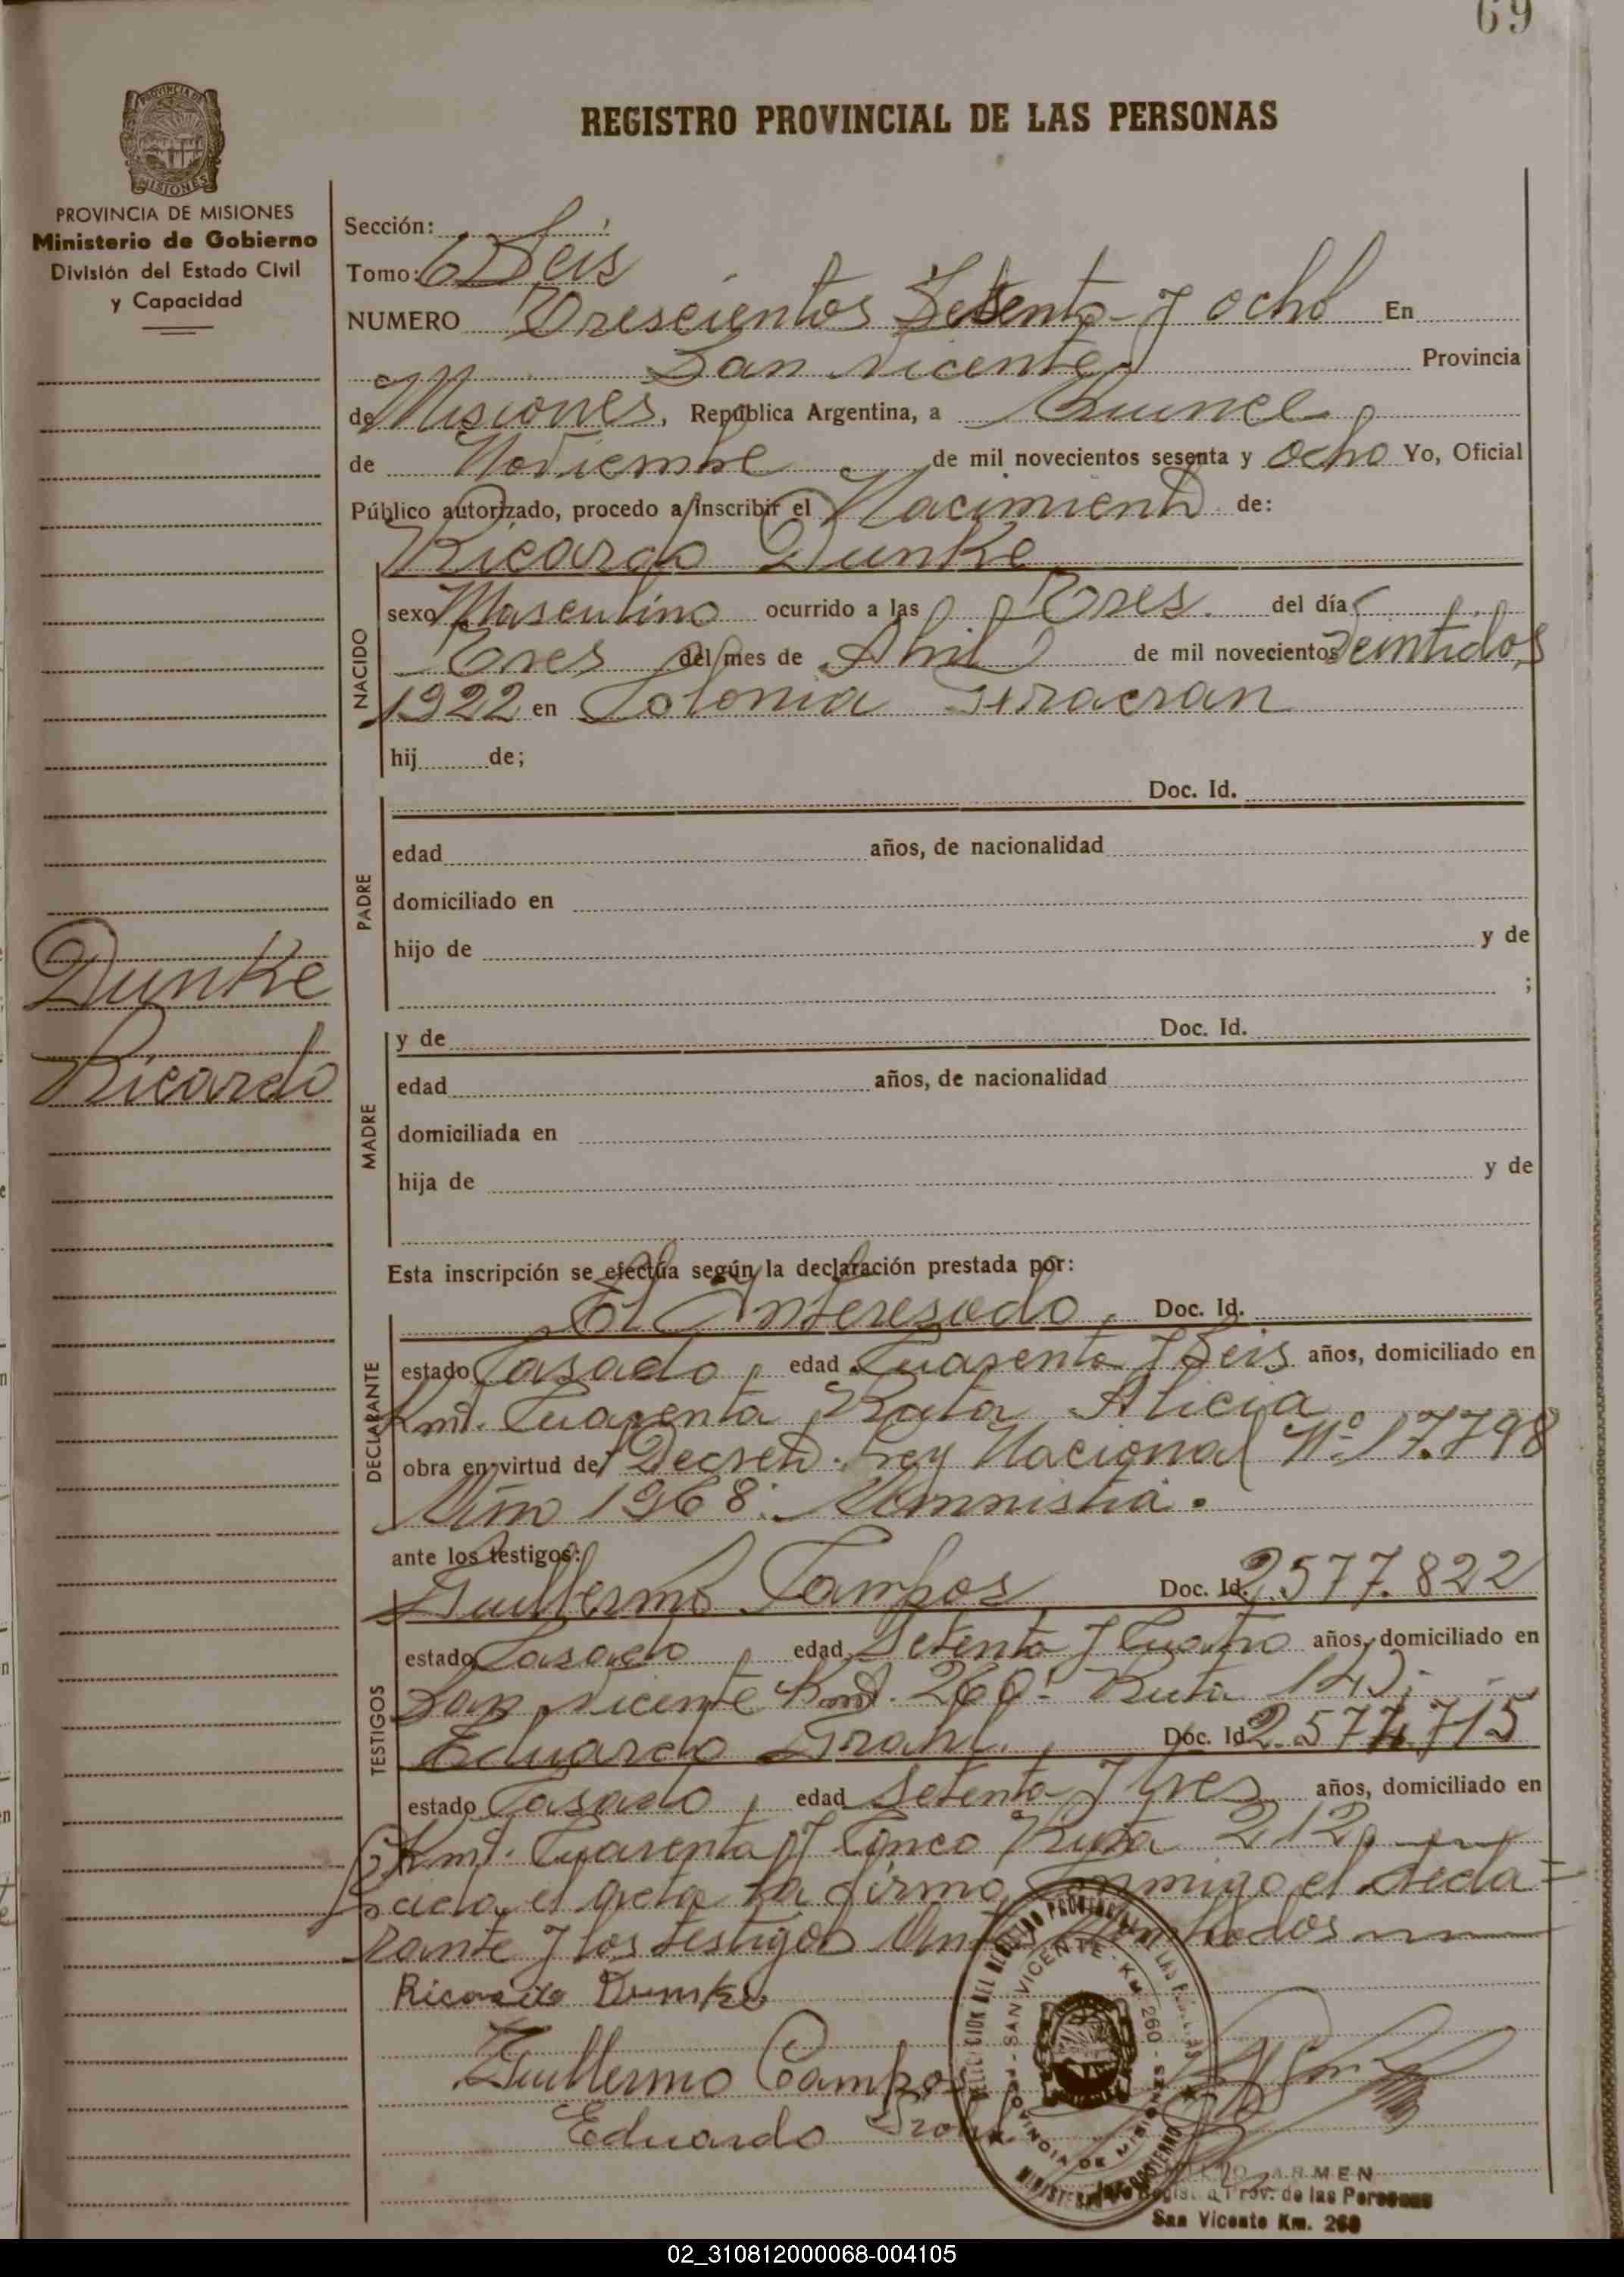 69
REGISTRO PROVINCIAL DE LAS PERSONAS
PROVINCIA DE MISIONES
Ministerio de Gobierno
División del Estado Civil
y Capacidad
Sección:
Tomo: 6 Seis
NUMERO Trescientos Setenta y ocho En
San Vicente Provincia
de Misiones, República Argentina, a Quince
de Noviembre de mil novecientos sesenta y ocho Yo, Oficial
Público autorizado, procedo a inscribir el Nacimiento de:
Ricardo Dunke
NACIDO
sexo Masculino ocurrido a las Tres del día
Tres del mes de Abril de mil novecientos Veintidos
1922 en Colonia
hij de;
Doc. Id.
PADRE
edad años, de nacionalidad
domiciliado en
hijo de y de
;
Dunke
Ricardo
MADRE
y de Doc. Id.
edad años, de nacionalidad
domiciliada en
hija de y de
Esta inscripción se efectúa según la declaración prestada por:
El Interesado, Doc. Id.
DECLARANTE
estado Casado, edad Cuarenta y Seis años, domiciliado en
Km. Cuarenta Ruta Alicia
obra en virtud de Decreto Ley Nacional Nº 17.798
Año 1968. Amnistia.
ante los testigos:
TESTIGOS
Guillermo Campos Doc. Id. 2.577.822
estado Casado, edad Setenta y Cuatro años, domiciliado en
San Vicente Km. 260. Ruta 14
Eduardo Doc. Id. 2.574.715
estado Casado, edad Setenta y tres años, domiciliado en
Km. Cuarenta y Cinco Ruta 212,
el acta la firma conmigo el decla=
rante y los testigos
Ricardo Dunke
Guillermo Campos
Eduardo
SAN VICENTE - Km 260 -
PROVINCIA DE MISIONES
Prov. de las Personas
San Vicente Km. 260
02_310812000068-004105